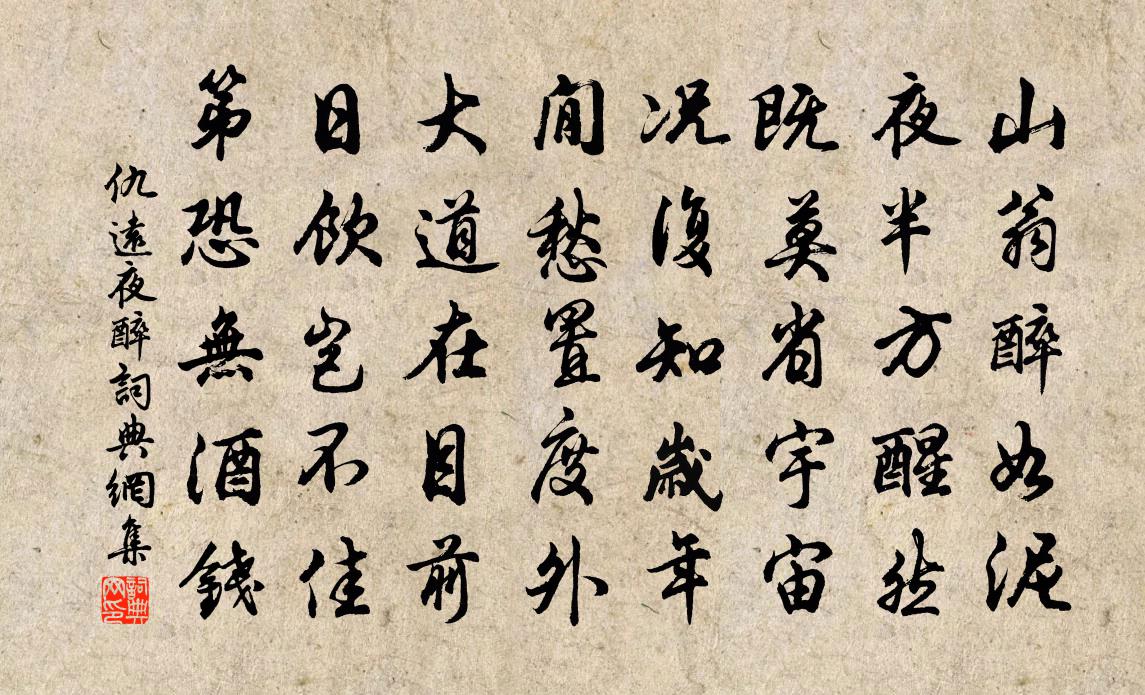 山翁醉如泥
夜半方醒然
既莫省宇宙
况復知歲年
閒愁置度外
大道在目前
日飲豈不佳
第恐無酒錢
仇遠夜醉詞典網集
詞典网印